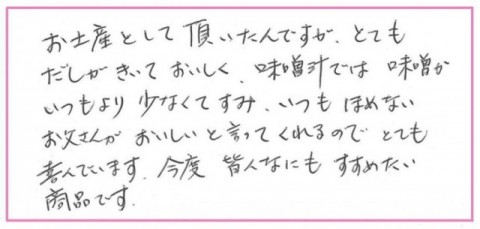 お土産として頂いたんですが、とても
だしがきいておいしく、味噌汁では味噌が
いつもより少なくてすみ、いつもほめない
お父さんがおいしいと言ってくれるのでとても
喜んでいます。今度皆人なにもすすめたい
商品です。